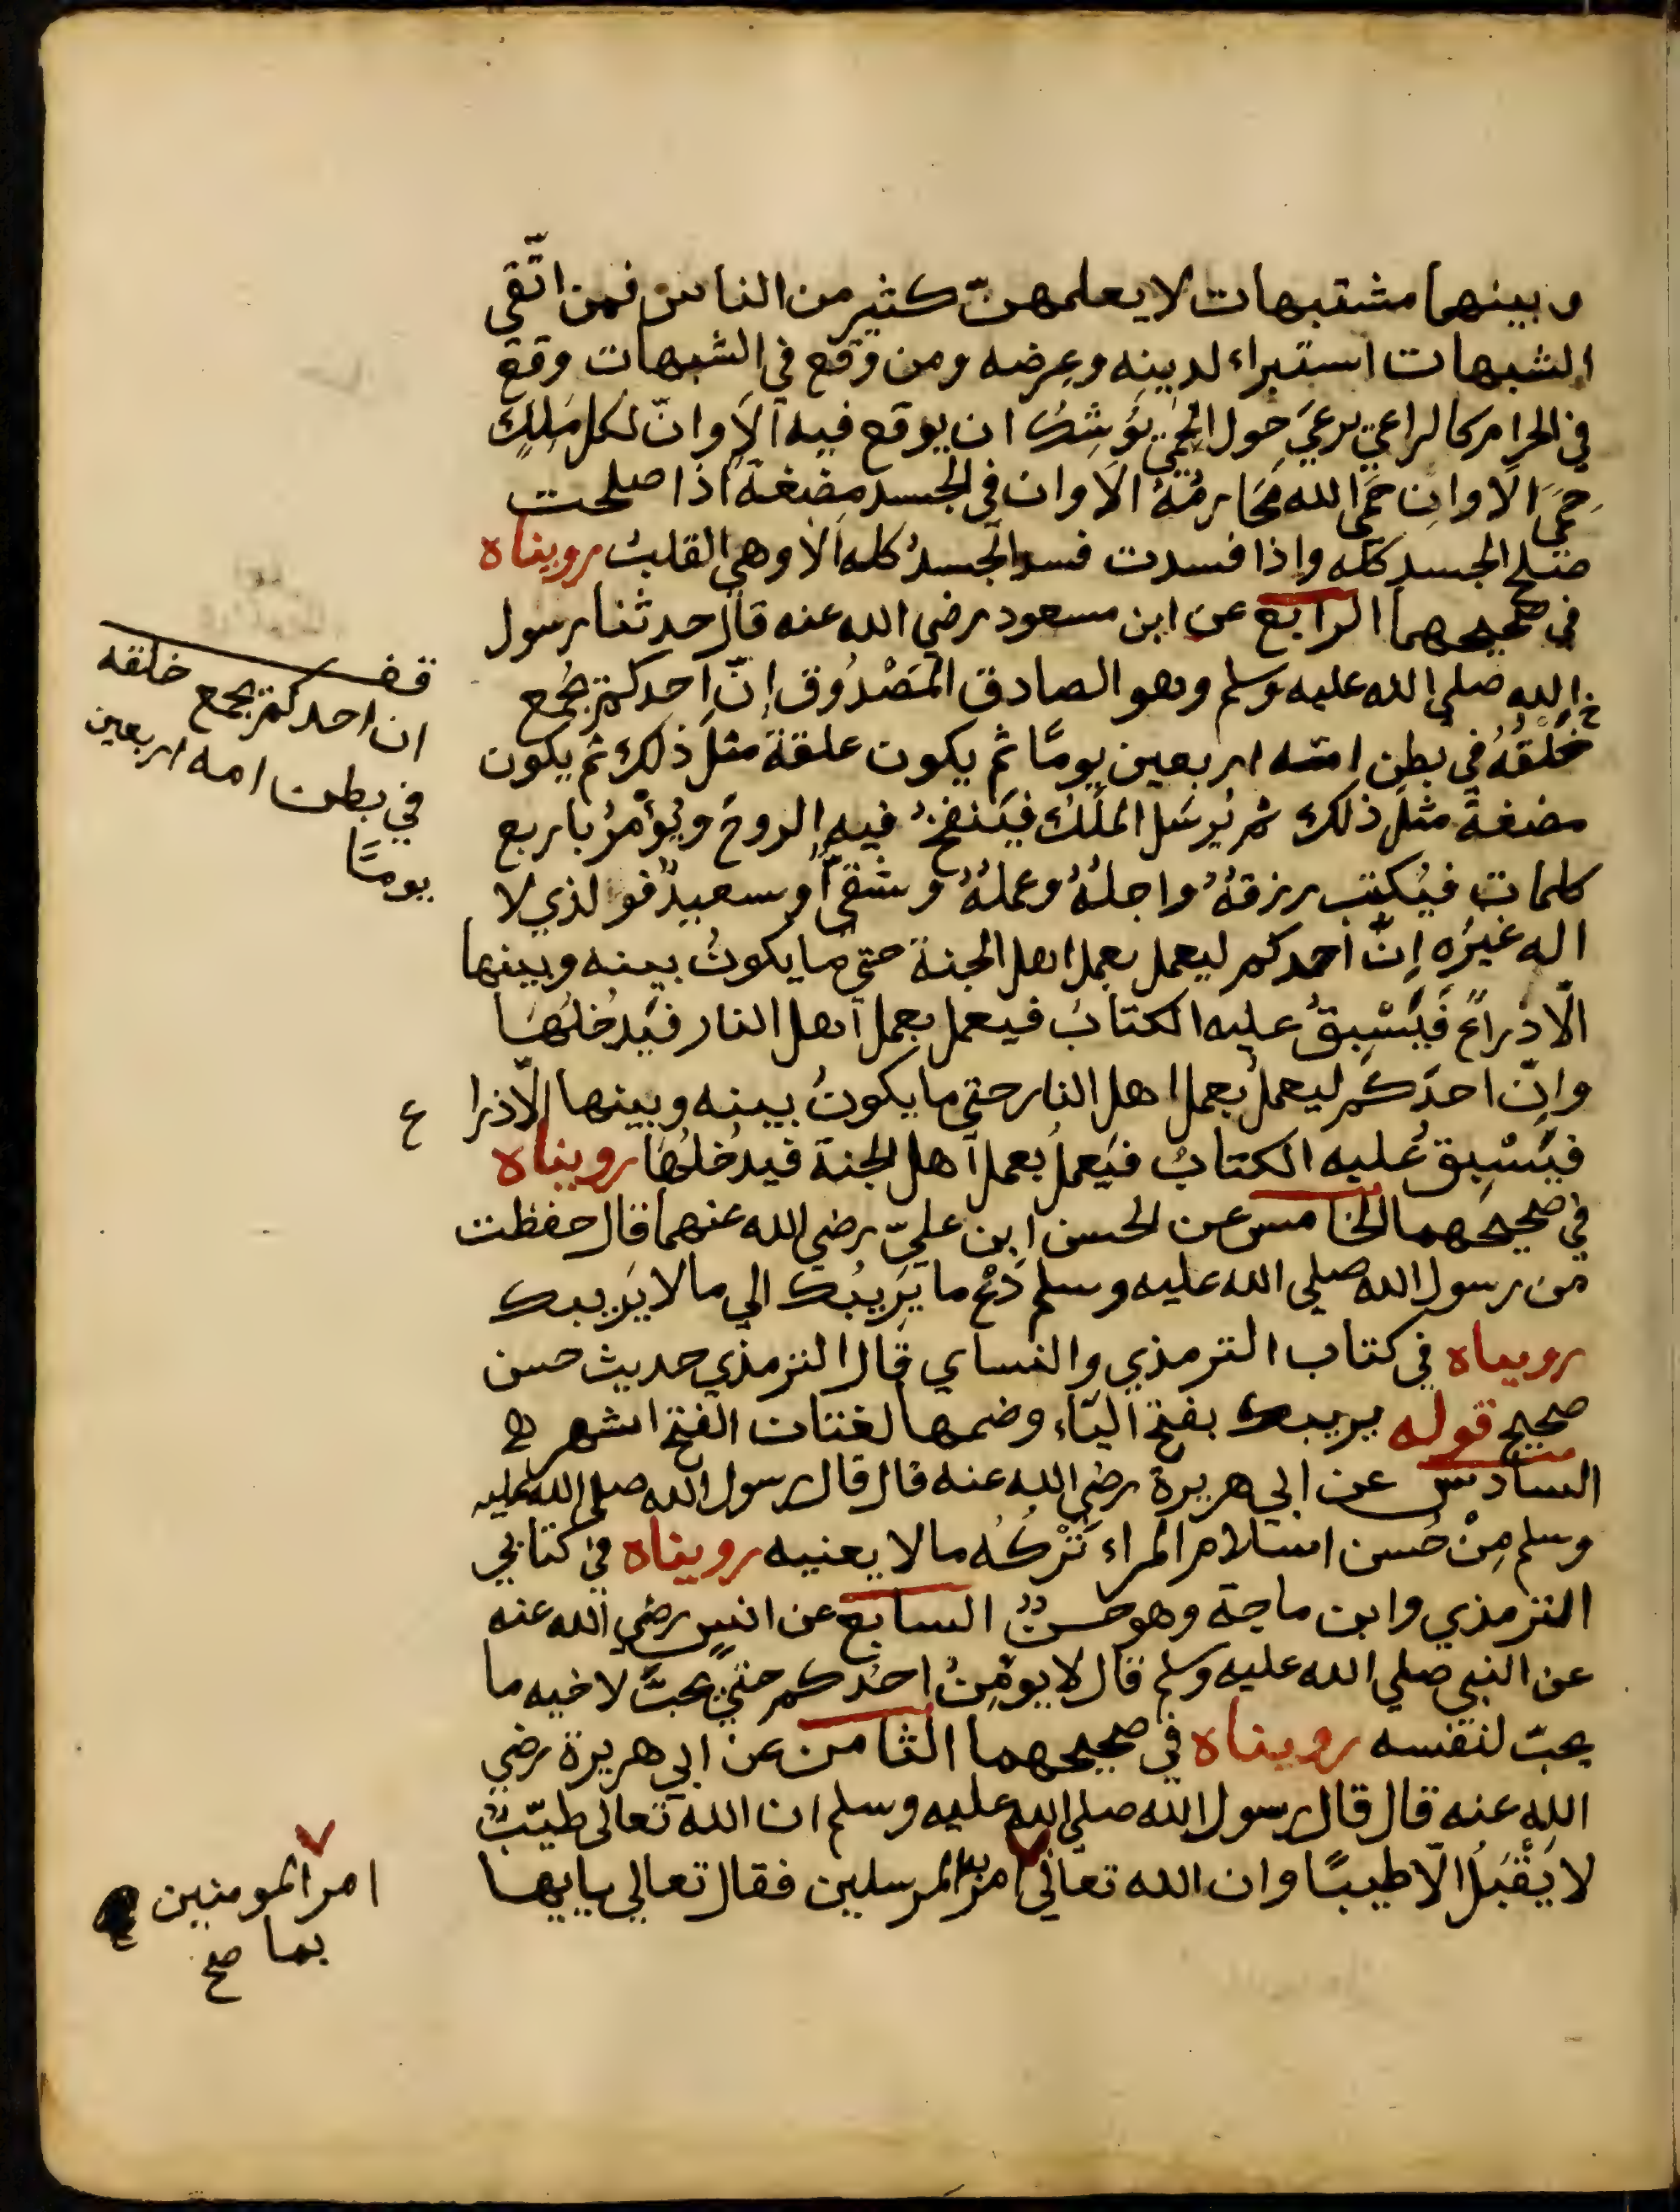 وبينهما مشتبهات لا يعلمهنّ كثير من الناس فمن اتّقى
الشبهات استبراء لدينه وعِرضه ومن وقع في الشبهات وقع
في الحرام كالراعي يرعيَ حول الحِمَى يُوشِكُ ان يوقع فيه الَا وانّ لكل مَلِكٍ
حِمَىً الَا وان حِمَى الله محَارِمُهُ الَا وان في الجسد مضغة اذا صلحت
صَلح الجسد كله واذا فسدت فسد الجسدُ كله الَا وهي القلبُ رويناه
في صحيحهما الرابع عن ابن مسعود رضي الله عنه قال حدثنا رسول
الله صلي الله عليه وسلم وهو الصادق المَصْدُوق إنّ احدكم يُجمع
خَلْقُهُ في بطن امّه اربعين يومًا ثم يكون علقة مثلَ ذلك ثم يكون
مضغةً مثلَ ذلك ثم يُرسَل الملَكُ فيَنفخُ فيه الروحَ ويُؤمرُ باربع
كلمات فيُكتب رزقهُ واجلهُ وعملهُ وشقيٌّ او سعيدٌ فو الذي لا
اله غيرُه إنّ احدكم ليعمل بعمل اهل الجنة حتي ما يكونُ بينه وبينها
الّا ذراعٌ فيَسْبِقُ عليه الكتابُ فيعمل بعمل اهل النار فيَدخلُها
وانّ احدَكم ليعملُ بعمل اهل النار حتي ما يكونُ بينه وبينها الّا ذرا
ع
فيَسْبِقُ عليه الكتابُ فيَعملُ بعمل اهل الجنة فيدخُلُها رويناه
في صحيحهما الخامس عن الحسن ابن عليّ رضي الله عنهما قال حفظت
من رسول الله صلي الله عليه وسلم دَعْ ما يَرِيبُك الي ما لا يَريبك
رويناه في كتاب الترمذي والنساي قال الترمذي حديث حسن
صحيح قوله يريبك بفتح الياء وضمها لغتان الفتح اشهر
السادس عن ابي هريرة رضي الله عنه قال قال رسول الله صلي الله عليه
وسلم مِنْ حُسن اسلام المراء تَرْكُه ما لا يعنيه رويناه في كتابي
الترمذي وابن ماجة وهو حسنٌ السابع عن انسٍ رضي الله عنه
عن النبي صلي الله عليه وسلم قال لا يومِنُ احدُكم حتيّ يحبَّ لاخيه ما
يحبّ لنفسه رويناه في صحيحهما الثامن عن ابي هريرة رضي
الله عنه قال قال رسول الله صلي الله عليه وسلم ان الله تعالى طيّبٌ
لا يَقْبَلُ الّا طيبًا وان الله تعالى امر به المرسلين فقال تعالي يايها
قف
ان احدكم يجمع خلقه
في بطن امه اربعين
يومًا
امر المومنين
بما صح